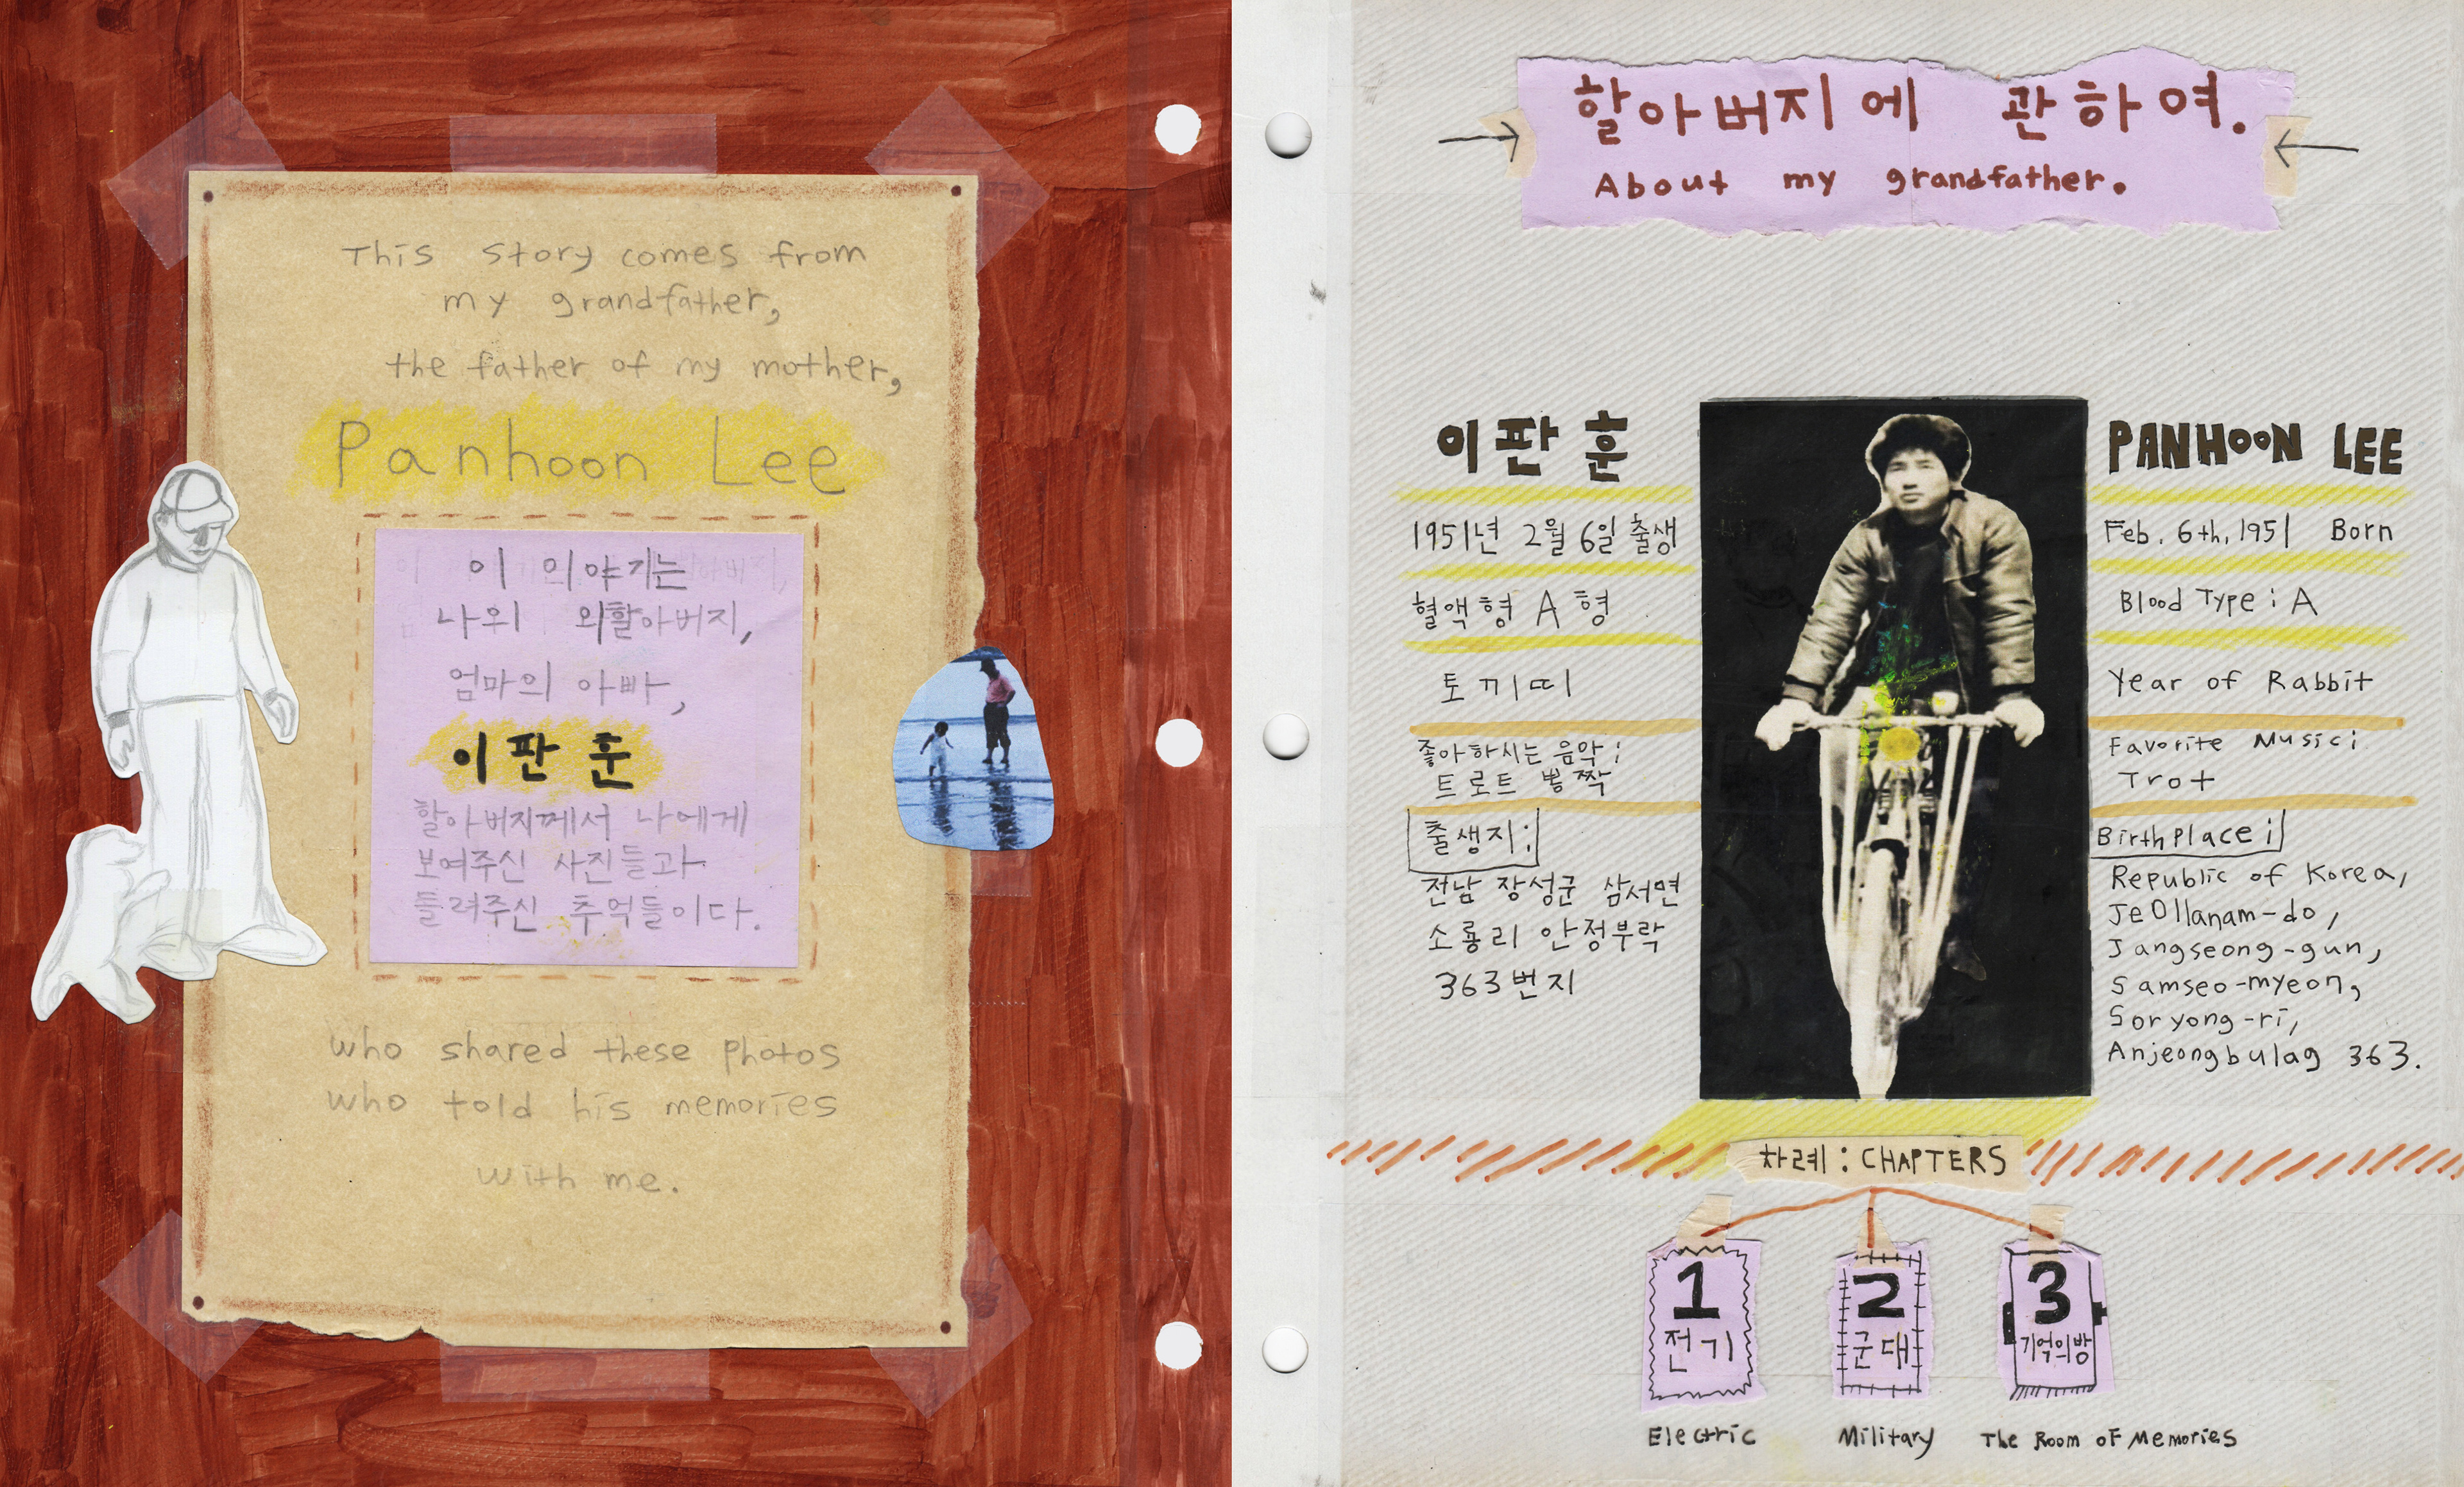 This story comes from
my grandfather,
the father of my mother,
Panhoon Lee
이 이야기는
나의 외할아버지,
엄마의 아빠,
이판훈
할아버지께서 나에게
보여주신 사진들과
들려주신 추억들이다.
who shared these photos
who told his memories
with me.
할아버지에 관하여.
About my grandfather.
이판훈
1951년 2월 6일 출생
혈액형 A 형
토끼띠
좋아하시는 음악:
트로트 뽕짝
출생지:
전남 장성군 삼서면
소룡리 안정부락
363번지
PANHOON LEE
Feb. 6th, 1951 Born
Blood Type: A
Year of Rabbit
Favorite Music:
Trot
Birthplace:
Republic of Korea,
Jeollanam-do,
Jangseong-gun,
Samseo-myeon,
Soryong-ri,
Anjeongbulag 363.
차례: CHAPTERS
1
전기
Electric
2
군대
Military
3
기억의 방
The Room of Memories